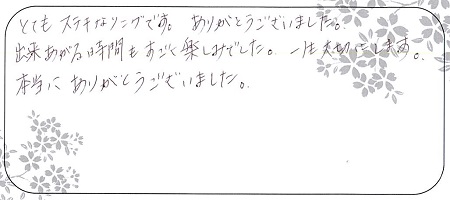 とても ステキなリングです。 ありがとうございました。
出来あがる時間もすごく楽しみでした。一生大切にします。
本当に ありがとうございました。